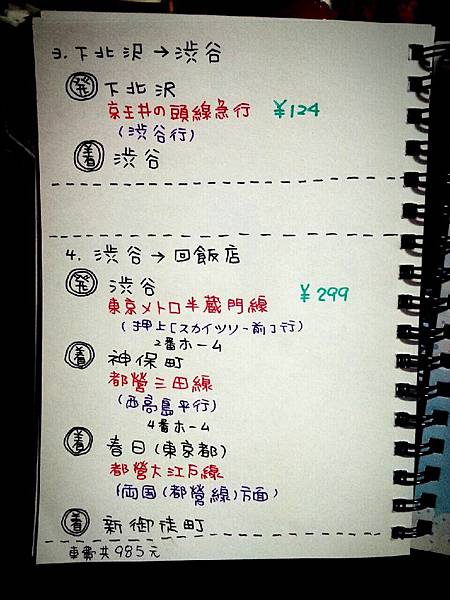 3. 下北沢 → 渋谷
発 下北沢
京王井の頭線急行 ¥124
(渋谷行)
着 渋谷
4. 渋谷 → 回飯店
発 渋谷 ¥299
東京メトロ半蔵門線
(押上[スカイツリー前]行)
2番ホーム
着 神保町
都營三田線
(西高島平行)
4番ホーム
着 春日(東京都)
都營大江戸線
(両国(都營線)方面)
着 新御徒町
車費共985元